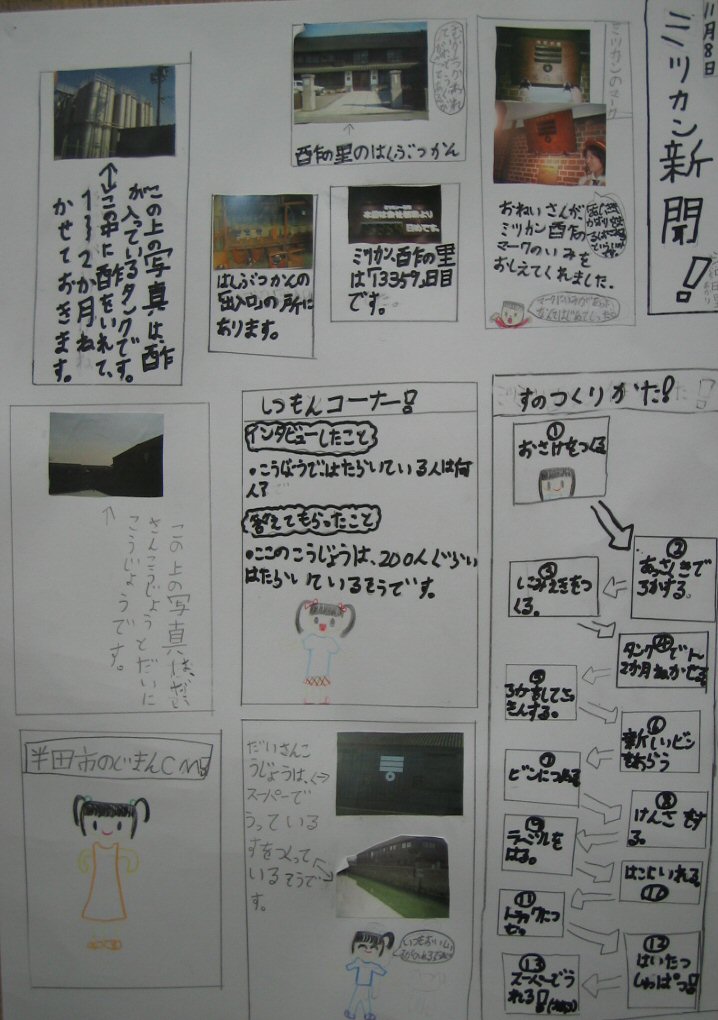 11月8日
ミツカン新聞!
ミツカンのマーク
おねいさんが、
ミツカン酢の
マークのいみを
おしえてくれました。
酢の里のはくぶつかん
ミツカン、酢の里
は「13359」日目
です。
はくぶつかんの
「出入口」の所に
あります。
この上の写真は、酢
が入っているタンクです。
↑この中に酢をいれて、
1~2か月ね
かせておきます。
すのつくりかた!
①
おさけをつくる
②
あっさくきで
ろかする。
③
しこみえきをつ
くる。
④
タンクで1~
2か月ねかせる
⑤
ろかをしてさっ
きんする。
⑥
新しいビン
をあらう
⑦
ビンにつめる
⑧
けんさをす
る。
⑨
ラベルを
はる。
はこにいれる。
⑩
⑪
トラックにつ
む。
⑫
はいたつ
しゅっぱつ!
⑬
スーパーでう
れる!
しつもんコーナー!
インタビューしたこと
・こうじょうではたらいている人は何
人?
答えてもらったこと
・ここのこうじょうは、200人ぐらい
はたらいているそうです。
この上の写真は、だい
さんこうじょうとだいに
こうじょうです。
だいさんこ
うじょうは、
スーパーで
うっている
すをつくって
いるそうで
す。
半田市のじまんCM!